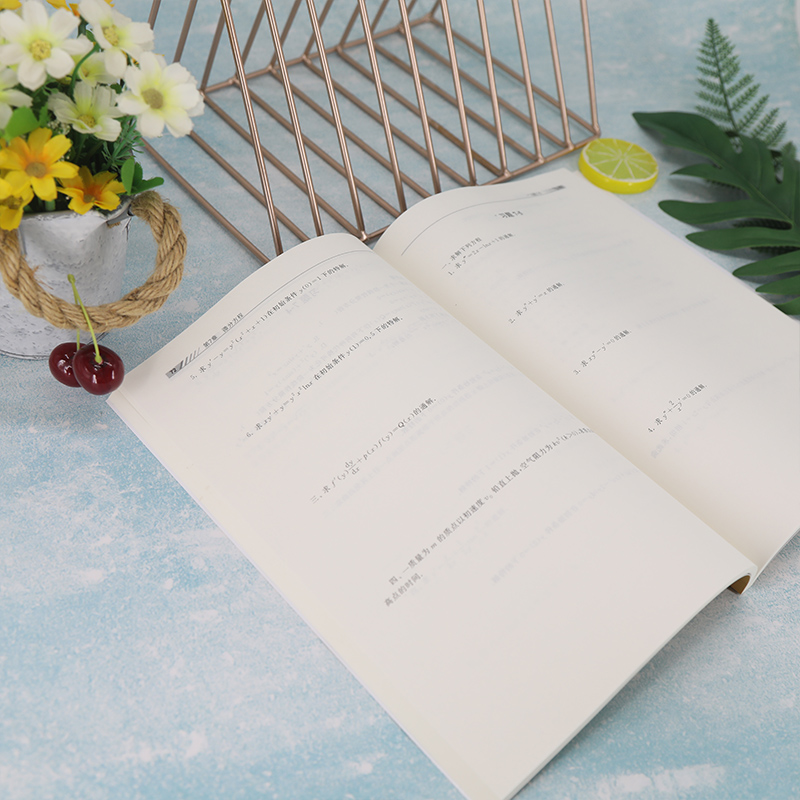 第7章 微分方程
5. 求 y′−y=y²(x²+x+1)在初始条件 y(0)=1下的特解.
6. 求 xy′+y=y²x²lnx 在初始条件 y(1)=0.5下的特解.
三、求 f′(y)dy/dx+p(x)f(y)=Q(x)的通解.
四、一质量为 m 的质点以初速度 v₀ 铅直上抛,空气阻力为 kv²(k>0
高点的时间.
习题7-6
一、求解下列方程
1. 求 的通解.
2. 求 y″+y′=x 的通解.
3. 求 xy″−y′=0 的通解.
4. 求 的通解